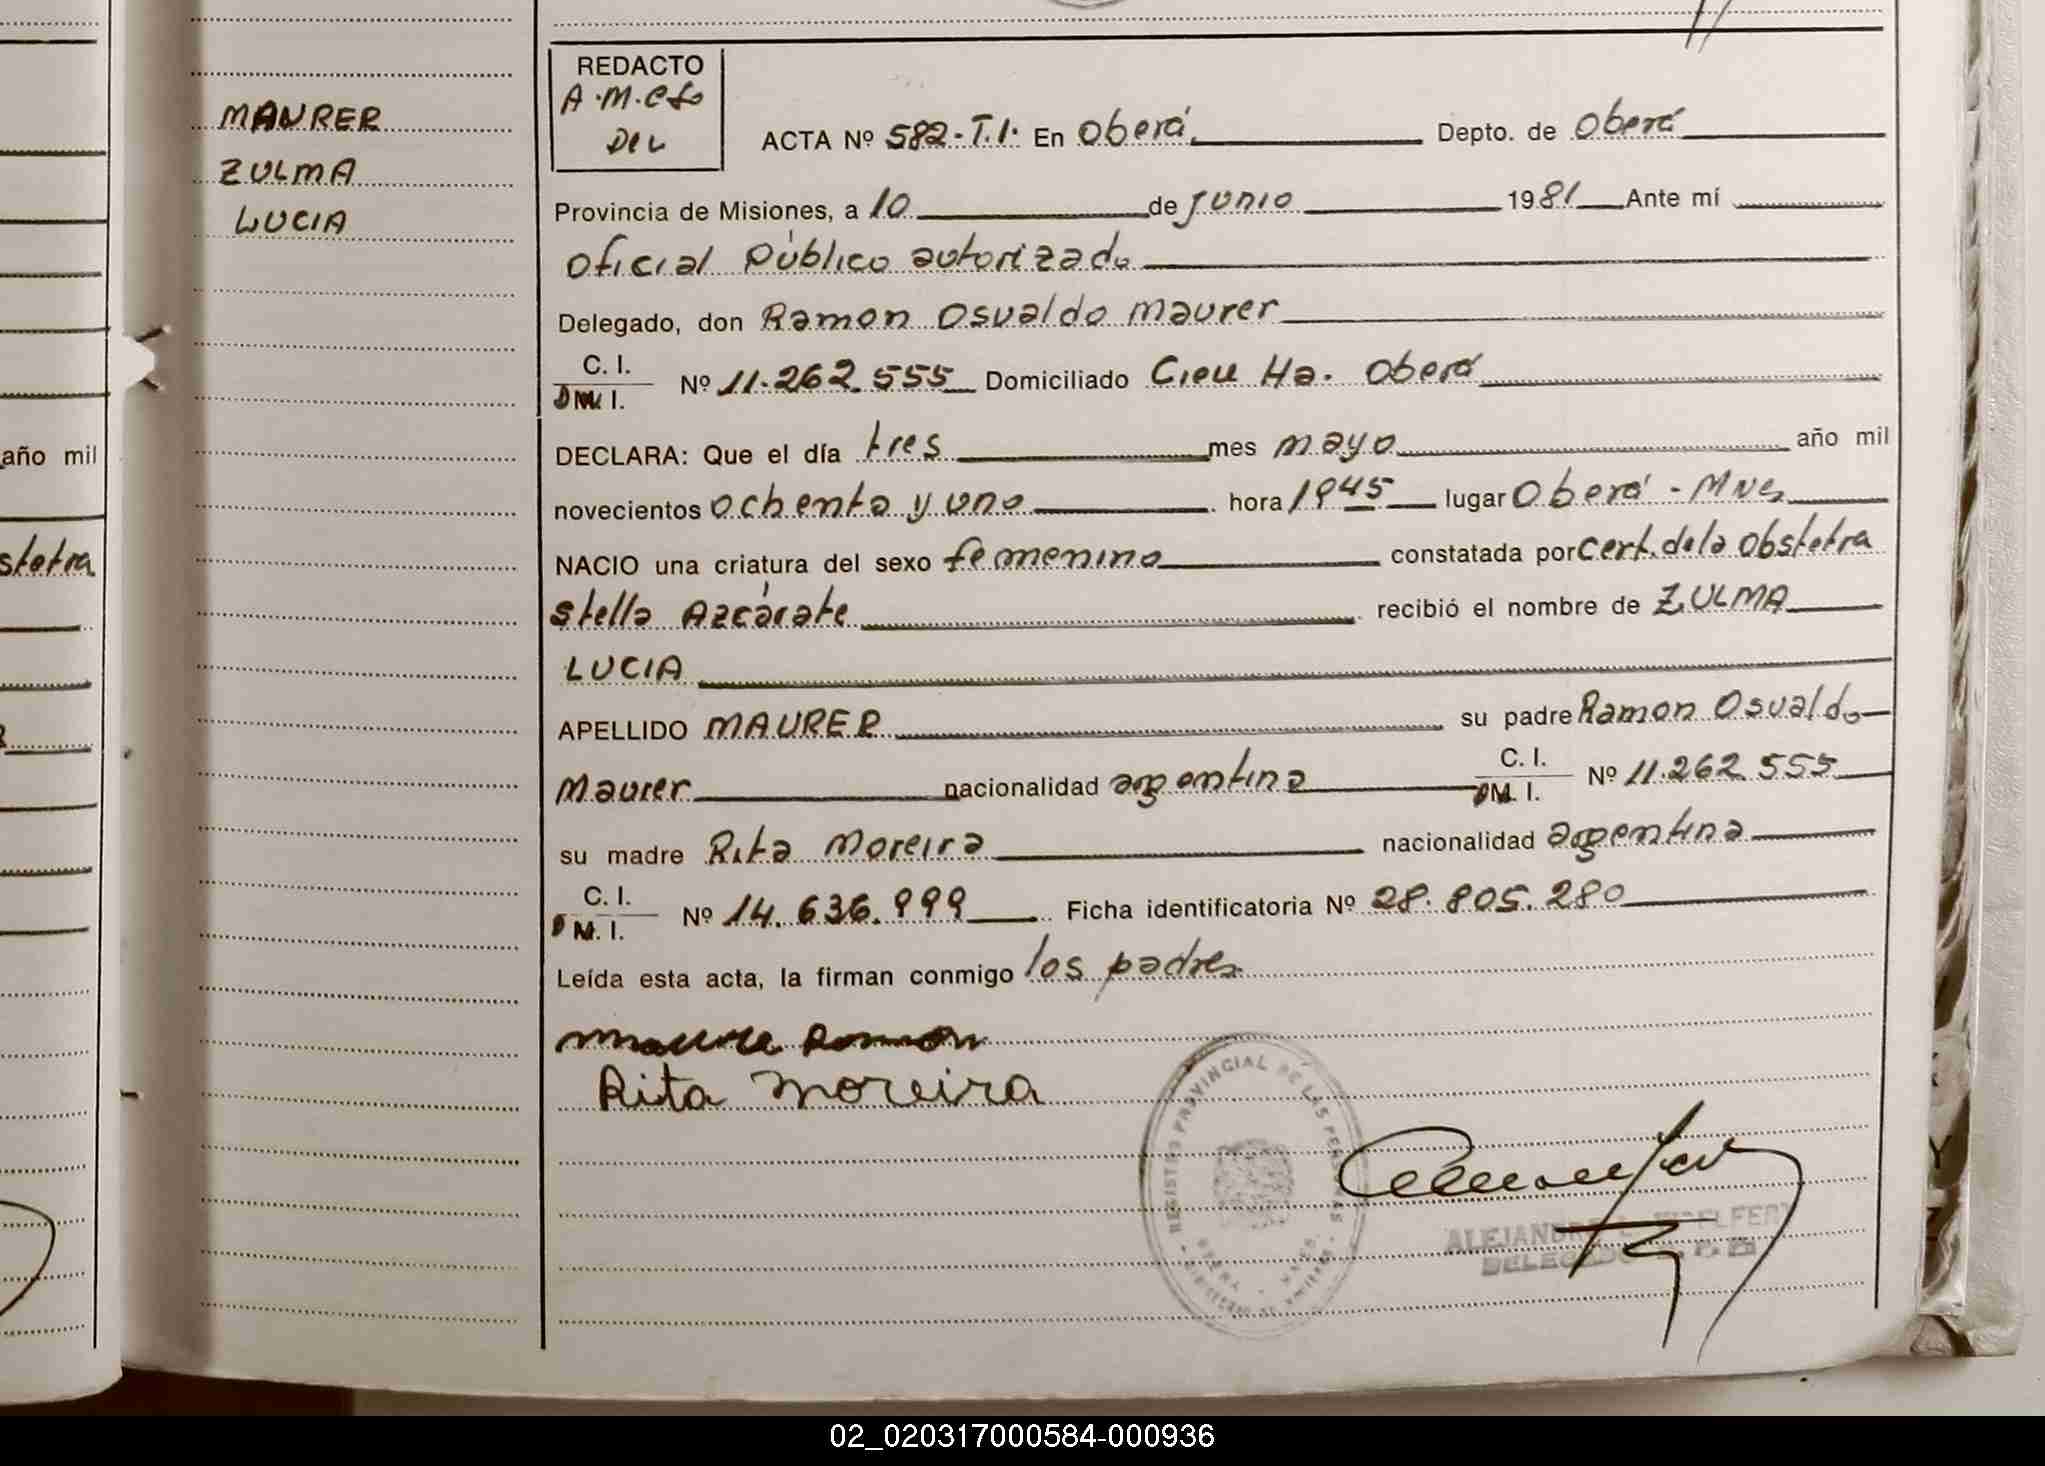 REDACTO
MAURER
ZULMA
LUCIA
ACTA Nº 582-T.I. En Oberá. Depto. de Oberá
Provincia de Misiones, a 10 de junio 1981 Ante mí
Oficial Público autorizado
Delegado, don Ramon Osvaldo Maurer
C. I.
D M. I. Nº 11.262.555 Domiciliado Ha. Oberá
DECLARA: Que el día tres mes mayo año mil
novecientos ochenta y uno hora 1945 lugar Oberá - Mnes
NACIO una criatura del sexo femenino constatada por cert. de la Obstetra
Stella Azcárate recibió el nombre de ZULMA
LUCIA
APELLIDO MAURER su padre Ramon Osvaldo
Maurer nacionalidad argentina C. I. D M. I. Nº 11.262.555
su madre Rita Moreira nacionalidad argentina
C. I.
D M. I. Nº 14.636.999 Ficha identificatoria Nº 28.805.280
Leída esta acta, la firman conmigo los padres
Maurer Ramon
Rita Moreira
REGISTRO PROVINCIAL DE LAS PERSONAS
ALEJANDRO
DELEGADO
año mil
stetra
02_020317000584-000936